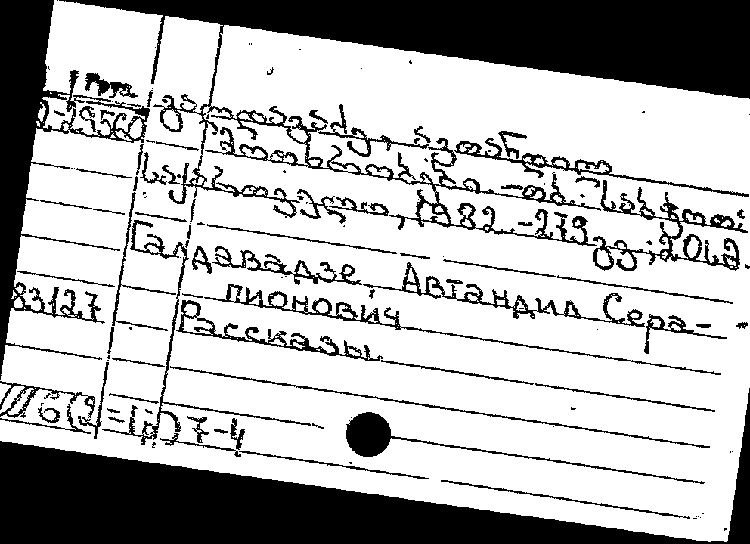 Груз.
2-29560
გალდავაძე, ავთანდილ
მოთხრობები. -თბ.: საბჭოთა
საქართველო, 1982. -279 გვ; 20სმ.
Галдавадзе, Автандил Сера-
пионович
83127
Рассказы.
С(2=Гр)7-4